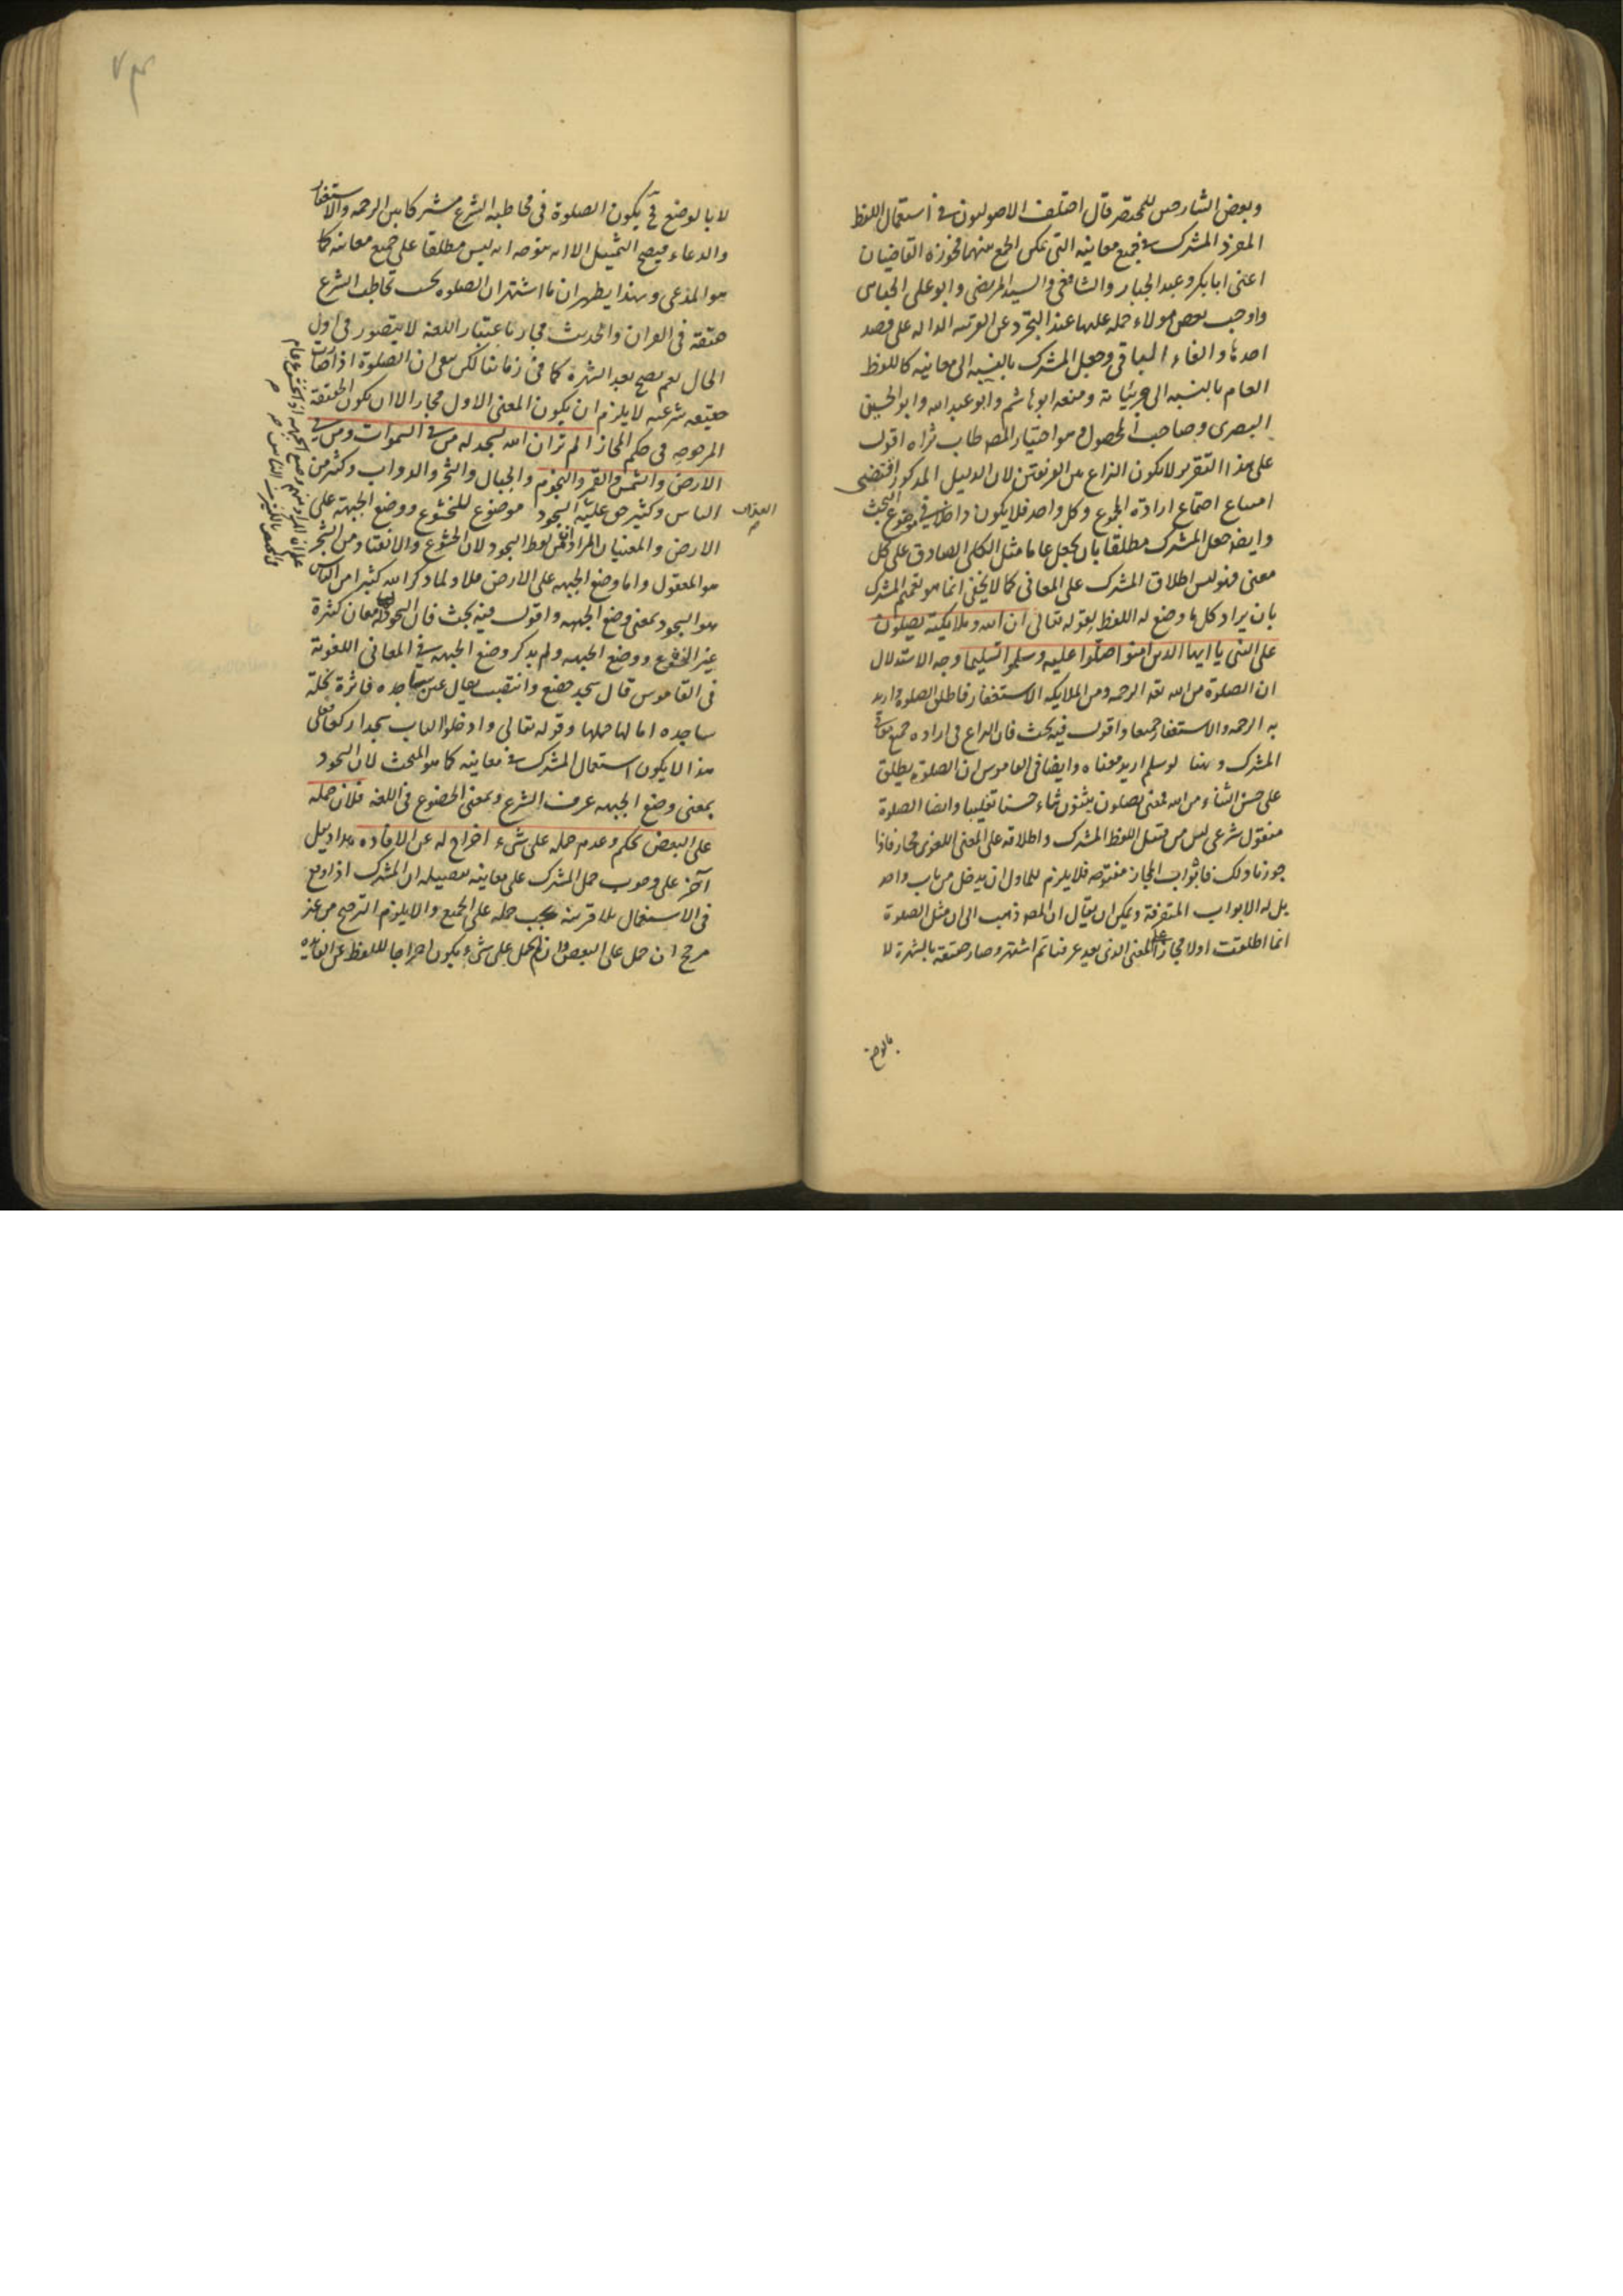 وبعض الشارحين للمختصر قال اختلف الاصوليون في استعمال اللفظ
المفرد المشترك في جميع معانيه التي يمكن الجمع بينهما فجوزه القاضيان
اعني ابابكر وعبد الجبار والشافعي والسيد المرتضى وابو علي الجبائي
واوجب بعض هولاء حمله عليها عند التجرد عن القرينة الدالة على قصد
احدها والغاء الباقي وجعل المشترك بالنسبة الى معانيه كاللفظ
العام بالنسبة الى جزئياته ومنعه ابو هاشم وابو عبد الله وابو الحسين
البصري وصاحب المحصول وهو اختيار المص طاب ثراه اقول
على هذا التقرير لا يكون النزاع بين الفرقتين لان الدليل المذكور اقتضى
امتناع اجتماع ارادة المجموع وكل واحد فلا يكون داخلا في موضوع البحث
وايضا جعل المشترك مطلقا بان يجعل عاما مثل الكلي الصادق على كل
معنى فهو ليس اطلاق المشترك على المعاني كما لا يخفى انما هو تعميم المشترك
بان يراد كل ما وضع له اللفظ لقوله تعالى ان الله وملايكته يصلون
على النبي يا ايها الذين امنوا صلوا عليه وسلموا تسليما وجه الاستدلال
ان الصلوة من الله تعه الرحمه ومن الملايكه الاستغفار فاطلق الصلوة واريد
به الرحمه والاستغفار جميعا واقول فيه بحث فان النزاع في اراده جميع معاني
المشترك وهنا لو سلم اريد معناه وايضا في القاموس ان الصلوة يطلق
على حسن الثناء من الله فمعنى يصلون يثنون ثناء حسنا تغليبا وايضا الصلوة
منقول شرعي ليس من قبيل اللفظ المشترك واطلاقه على المعنى اللغوي مجاز فاذا
جوزنا ذلك فابواب المجاز مفتوحه فلا يلزم للماول ان يدخل من باب واحد
بل له الابواب المتفرقة ويمكن ان يقال ان المص ذهب الى ان مثل الصلوة
انما اطلقت اولا مجازا على المعنى الذي يعيد عرفنا ثم اشتهر وصار حقيقة بالشهرة لا
بالوضع
لا بالوضع فح يكون الصلوة في مخاطبه الشرع مشتركا بين الرحمه والاستغفار
والدعاء فيصح التمثيل الا انه يتوجه انه ليس مطلقا على جميع معانيه كما
هو المدعى وبهذا يظهر ان ما اشتهر ان الصلوه بحسب تخاطب الشرع
حقيقة في القران والحديث مجاز باعتبار اللغة لا يتصور في اول
الحال نعم يصح بعد الشهرة كما في زماننا لكن بقى ان الصلوة اذا صارت
حقيقه شرعيه لا يلزم ان يكون المعنى الاول مجازا الا ان يكون الحقيقة
المرجوحه في حكم المجاز الم تر ان الله يسجد له من في السموات ومن في
الارض والشمس والقمر والنجوم والجبال والشجر والدواب وكثير من
الناس وكثير حق عليه العذاب السجود موضوع للخشوع ووضع الجبهة على
الارض والمعنيان المرادان من لفظ السجود لان الخشوع والانقياد من الشجر
هو المعقول واما وضع الجبهه على الارض فلا ولما ذكر الله كثيرا من الناس
هو السجود بمعنى وضع الجبهه واقول فيه بحث فان السجود له معان كثيرة
غير الخشوع ووضع الجبهه ولم يذكر وضع الجبهه في المعاني اللغوية
في القاموس قال سجد خضع وانتصب يقال عين ساجده فاترة نخلة
ساجده امالها حملها وقوله تعالى وادخلوا الباب سجدا ركعا فعلى
هذا لا يكون استعمال المشترك في معانيه كما هو المبحث لان السجود
بمعنى وضع الجبهه عرف الشرع وبمعنى الخضوع في اللغه فلان حمله
على البعض تحكم وعدم حمله على شيء اخراج له عن الافاده هذا دليل
آخر على وجوب حمل المشترك على معانيه تفصيله ان المشترك اذا وقع
في الاستعمال بلا قرينة يجب حمله على الجميع والا يلزم الترجيح من غير
مرجح ان حمل على البعض وان لم يحمل على شيء يكون اخراجا للفظ عن الفايده